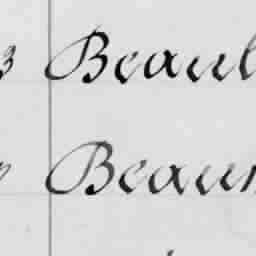 3 Beaul
Beaun